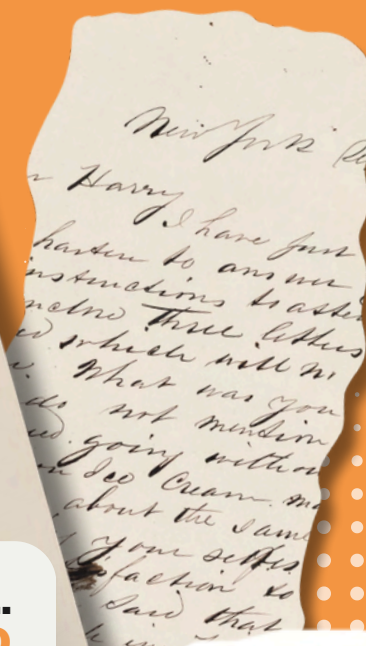 New York
Harry
I have just
hasten to answer
instructions
three letters
which will
What was you
do not mention
going without
Ice Cream.
about the same
your selfis
faction to
Said that